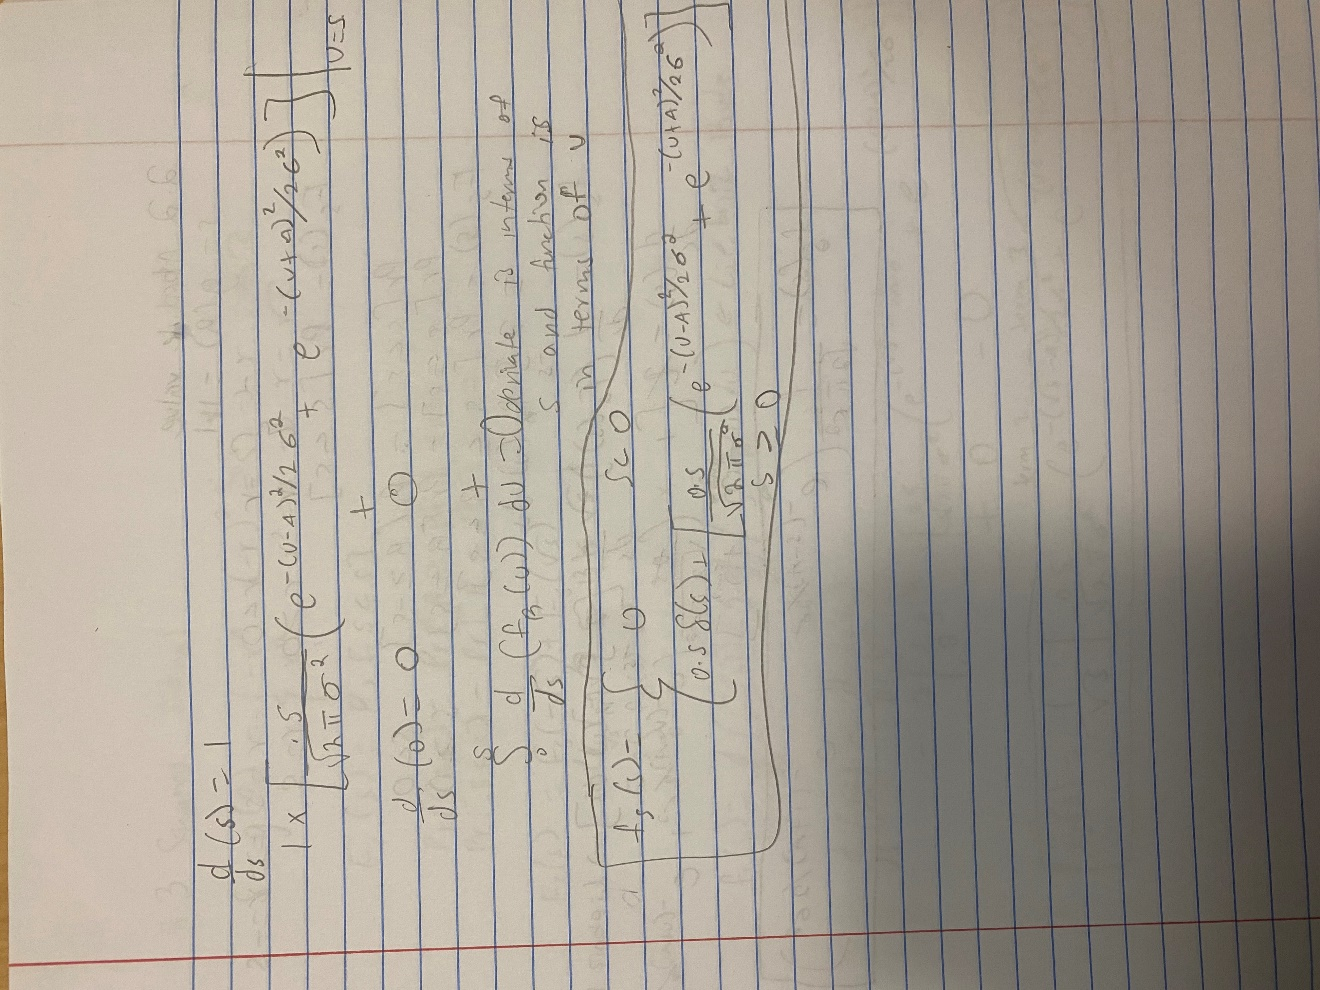 d/ds (s) = 1
1 x [ .5/√2πσ² ( e^-(v-A)²/2σ² + e^-(v+A)²/2σ² ) ] |v=s
+
d/ds (0) = 0 0
+
∫₀ˢ d/ds (fB (v)) dv = 0 derivate is interms of
s and function is
in terms of v
fs (s) = { 0 s < 0
0.5 δ(s) + [ 0.5/√2πσ² ( e^-(v-A)²/2σ² + e^-(v+A)²/2σ² ) ]
s ≥ 0